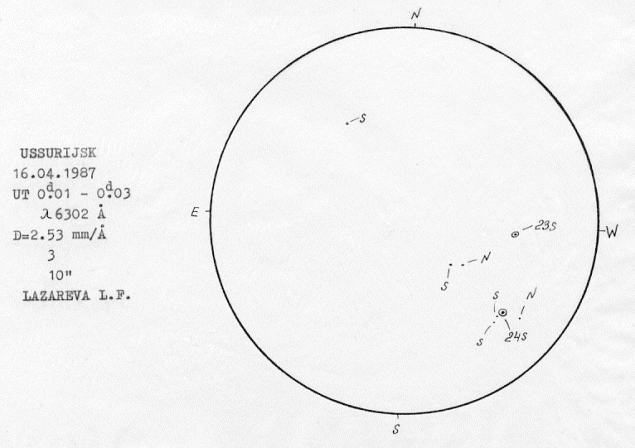 N
S
USSURIJSK
16.04.1987
UT 0ᵈ.01 - 0ᵈ.03
λ6302 Å
D=2.53 mm/Å
3
10"
LAZAREVA L.F.
E
23S
W
N
S
S
N
S
24S
S